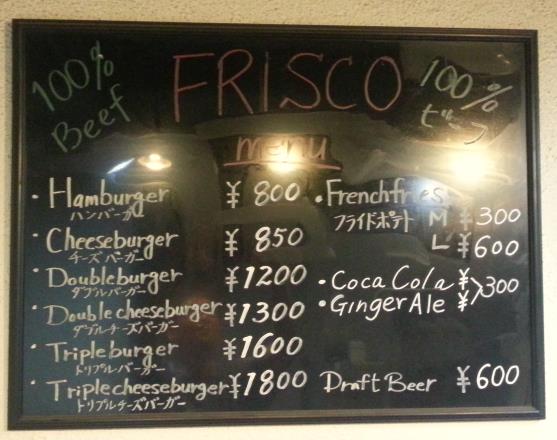 100% Beef
FRISCO
100% ビーフ
menu
・Hamburger ¥800
ハンバーガー
・Cheeseburger ¥850
チーズバーガー
・Doubleburger ¥1200
ダブルバーガー
・Double cheeseburger ¥1300
ダブルチーズバーガー
・Tripleburger ¥1600
トリプルバーガー
・Triplecheeseburger ¥1800
トリプルチーズバーガー
・Frenchfries
フライドポテト M ¥300
L ¥600
・Coca Cola ¥
・Ginger Ale ¥ >300
Draft Beer ¥600